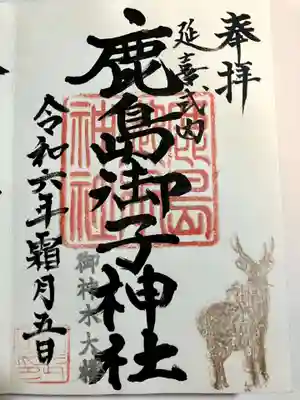 奉拝
延喜式内
鹿島御子神社
御神水大欅
令和六年霜月五日